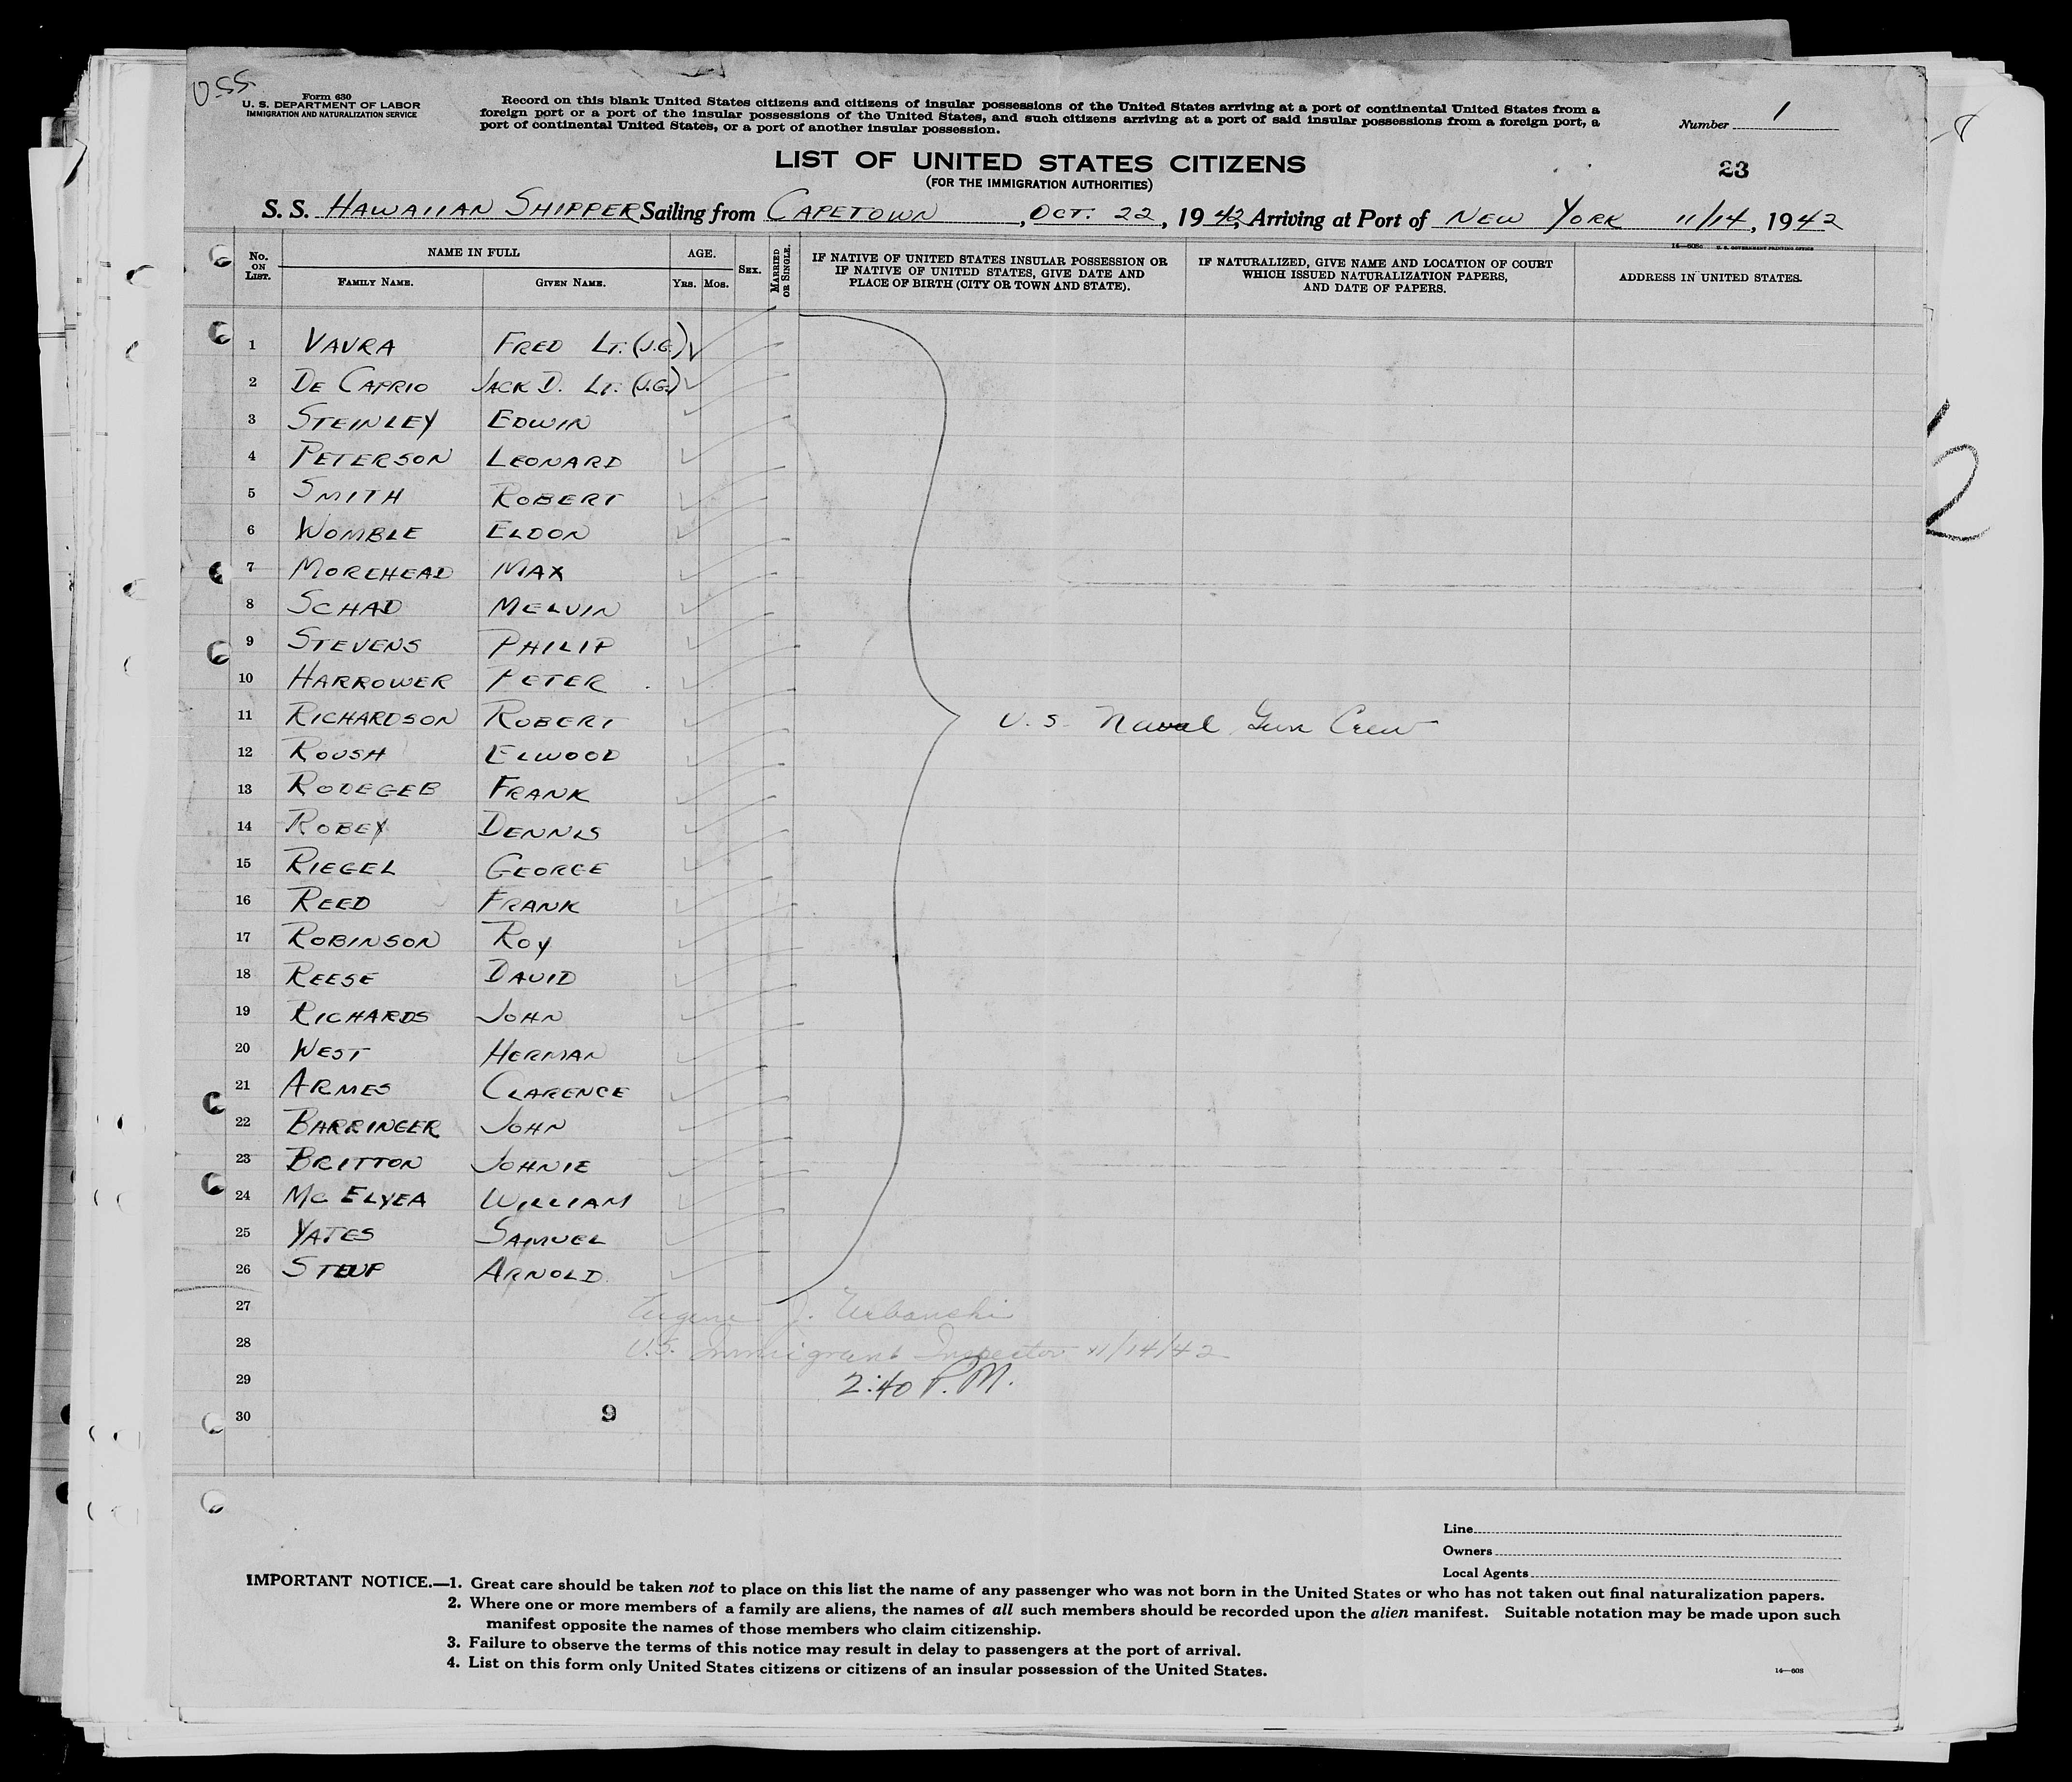 USS.
Form 630
U. S. DEPARTMENT OF LABOR
IMMIGRATION AND NATURALIZATION SERVICE
Record on this blank United States citizens and citizens of insular possessions of the United States arriving at a port of continental United States from a
foreign port or a port of the insular possessions of the United States, and such citizens arriving at a port of said insular possessions from a foreign port, a
port of continental United States, or a port of another insular possession.
Number 1
LIST OF UNITED STATES CITIZENS
(FOR THE IMMIGRATION AUTHORITIES)
23
S. S. HAWAIIAN SHIPPER Sailing from CAPETOWN, OCT. 22, 1942, Arriving at Port of NEW YORK 11/14, 1942
14—608c U. S. GOVERNMENT PRINTING OFFICE
No. ON LIST.
NAME IN FULL
FAMILY NAME. GIVEN NAME.
AGE.
YRS. MOS.
SEX.
MARRIED OR SINGLE.
IF NATIVE OF UNITED STATES INSULAR POSSESSION OR
IF NATIVE OF UNITED STATES, GIVE DATE AND
PLACE OF BIRTH (CITY OR TOWN AND STATE).
IF NATURALIZED, GIVE NAME AND LOCATION OF COURT
WHICH ISSUED NATURALIZATION PAPERS,
AND DATE OF PAPERS.
ADDRESS IN UNITED STATES.
1 VAVRA FRED LT. (J.G.)
2 DE CAPRIO JACK D. LT. (J.G.)
3 STEINLEY EDWIN
4 PETERSON LEONARD
5 SMITH ROBERT
6 WOMBLE ELDON
7 MOREHEAD MAX
8 SCHAD MELVIN
9 STEVENS PHILIP
10 HARROWER PETER
11 RICHARDSON ROBERT
U. S. Naval Gun Crew
12 ROUSH ELWOOD
13 RODEGEB FRANK
14 ROBEY DENNIS
15 RIEGEL GEORGE
16 REED FRANK
17 ROBINSON ROY
18 REESE DAVID
19 RICHARDS JOHN
20 WEST HERMAN
21 ARMES CLARENCE
22 BARRINGER JOHN
23 BRITTON JOHNIE
24 MC ELYEA WILLIAM
25 YATES SAMUEL
26 ARNOLD
27 Eugene J. Urbanski
28 U.S. Immigrant Inspector 11/14/42
29 2:40 P.M.
30 9
12
Line
Owners
Local Agents
IMPORTANT NOTICE.—1. Great care should be taken not to place on this list the name of any passenger who was not born in the United States or who has not taken out final naturalization papers.
2. Where one or more members of a family are aliens, the names of all such members should be recorded upon the alien manifest. Suitable notation may be made upon such
manifest opposite the names of those members who claim citizenship.
3. Failure to observe the terms of this notice may result in delay to passengers at the port of arrival.
4. List on this form only United States citizens or citizens of an insular possession of the United States.
14—608